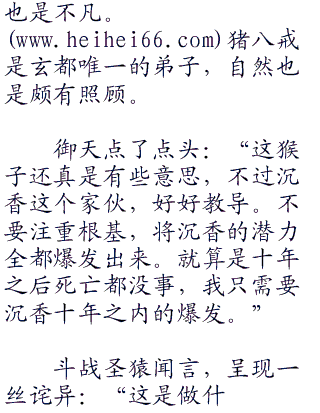 也是不凡。
(www.heihei66.com)猪八戒
是玄都唯一的弟子，自然也
是颇有照顾。
御天点了点头：“这猴
子还真是有些意思，不过沉
香这个家伙，好好教导。不
要注重根基，将沉香的潜力
全都爆发出来。就算是十年
之后死亡都没事，我只需要
沉香十年之内的爆发。”
斗战圣猿闻言，呈现一
丝诧异：“这是做什